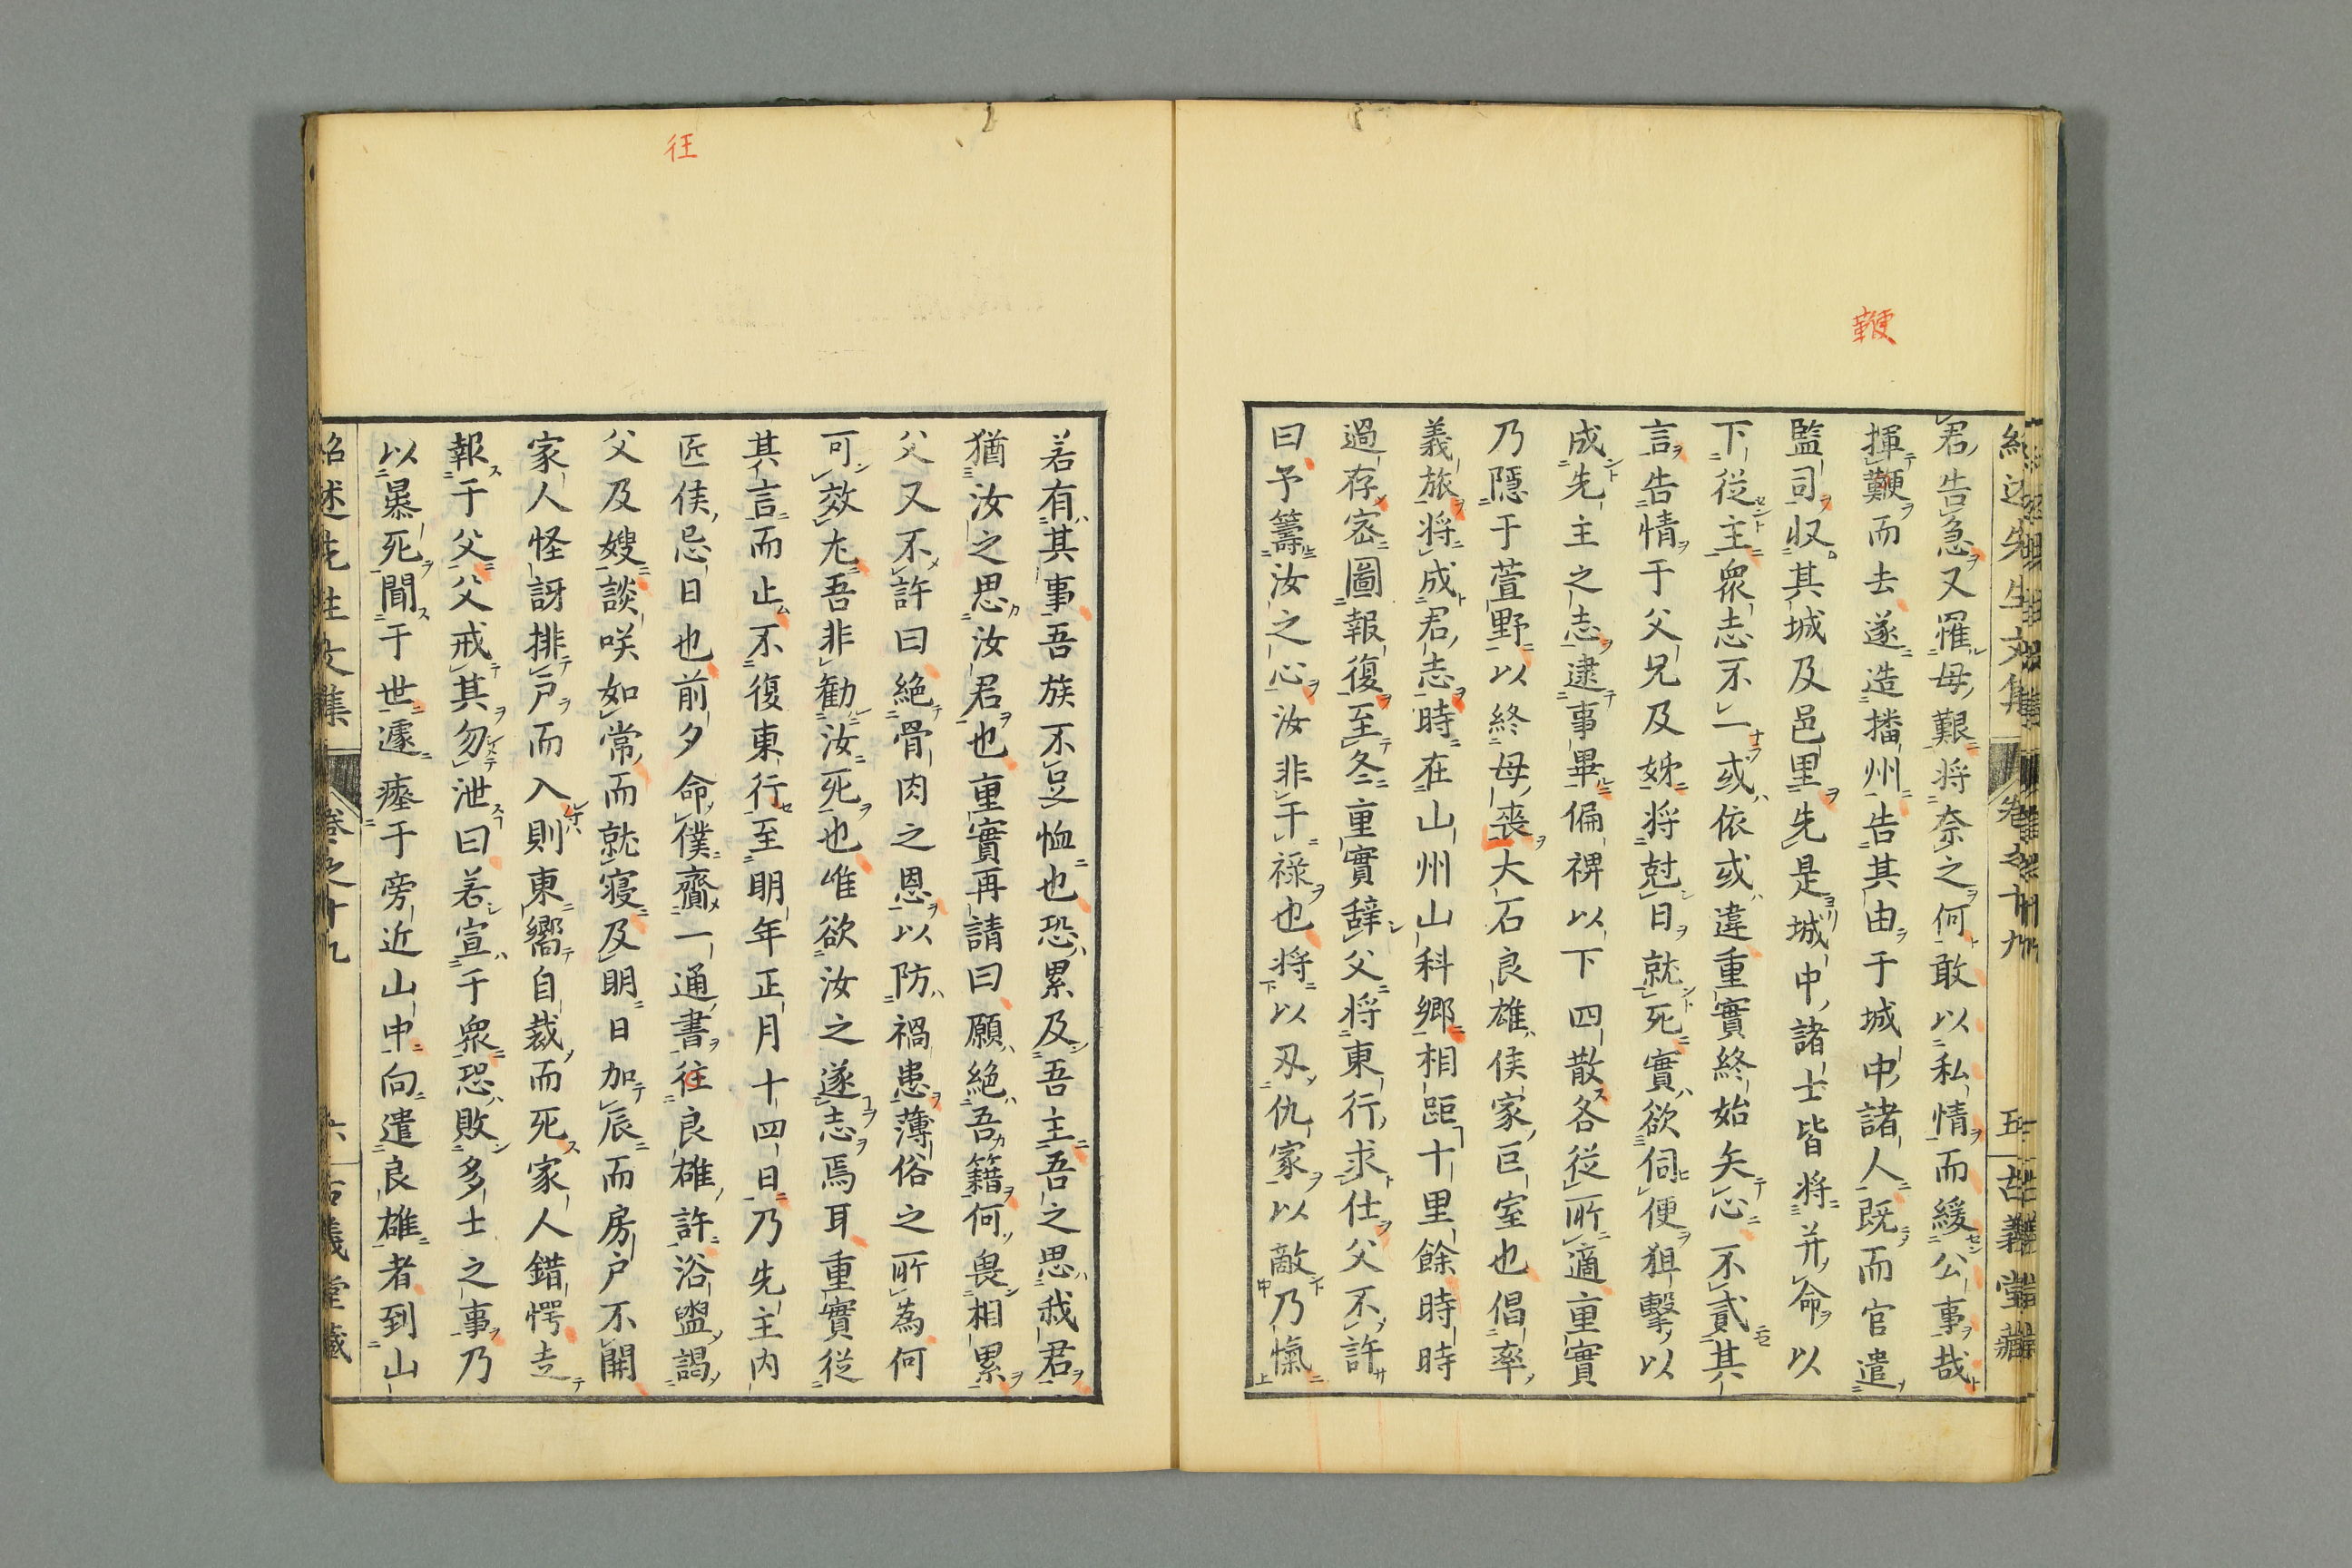 鞭
君告急又罹母艱将奈之何敢以私情而緩公事哉
揮鞕而去遂造播州告其由于城中諸人既而官遣
監司収其城及邑里先是城中諸士皆将并命以
下從主衆志不一或依或違重實終始矢心不貳其
言告情于父兄及姊将尅日就死實欲伺便狙擊以
成先主之志逮事畢偏裨以下四散各従所適重實
乃隱于萱野以終母喪大石良雄侯家巨室也倡率
義旅将成君志時在山州山科郷相距十里餘時時
過存宻圖報復至冬重實辭父将東行求仕父不許
曰予籌汝之心汝非干禄也将以刄仇家以敵乃愾
紹述先生文集 卷之十九 五 古義堂藏
徃
若有其事吾族不足恤也恐累及吾主吾之思我君
猶汝之思汝君也重實再請曰願絶吾籍何畏相累
父又不許曰絶骨肉之恩以防禍患薄俗之所為何
可效尤吾非勧汝死也唯欲汝之遂志焉耳重實従
其言而止不復東行至明年正月十四日乃先主内
匠侯忌日也前夕命僕齎一通書徃良雄許浴盥謁
父及嫂談咲如常而就寝及明日加辰而房户不開
家人怪訝排户而入則東嚮自裁而死家人錯愕走
報于父父戒其勿泄曰若宣于衆恐敗多士之事乃
以暴死聞于世遽瘞于旁近山中向遣良雄者到山
紹述先生文集 卷之十九 六 古義堂藏